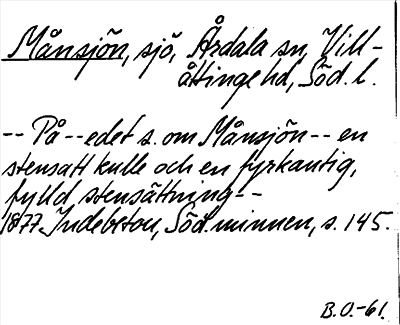 Månsjön, sjö, Årdala sn, Vill-
åttinge hd, Söd. l.
-- På--edet s. om Månsjön-- en
stensatt kulle och en fyrkantig,
fylld stensättning--
1877 Indebetou, Söd. minnen, s. 145.
B.O.-61.